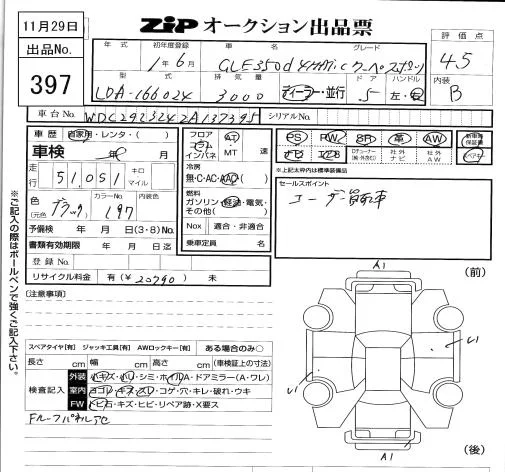 11月29日
ZiP オークション出品票
評価点
4.5
内装
B
出品No.
397
年式
初年度登録
車名
グレード
1年6月
GLE350d 4MATICクーペスポーツ
型式
排気量
ドア
ハンドル
LDA-166024
3000
ディーラー・並行
5
左・右
車台No.
WDC2923242A137395
シリアルNo.
車歴
自家用・レンタ・( )
車検
年 月
走行
51,051
キロ
マイル
色
(元色
ブラック
カラーNo.
197
内装色
予備検 年 月 日(3・8)No.
書類有効期限 年 月 日迄
登録No.
リサイクル料金 有(¥ 20790 )
フロア
コラム
インパネ
AT
MT
速
冷房
無・C・AC・AAC
燃料
ガソリン・軽油・電気・その他( )
Nox
適合・非適合
乗車定員 名
PS
PW
SR
革
AW
ナビ
エアB
Dチューナー
社外ナビ
社外AW
新車時保証書
※上記太枠内は標準装備品
セールスポイント
ユーザー買取車
※ご記入の際はボールペンで強くご記入下さい。
[注意事項]
スペアタイヤ[有] ジャッキ工具[有] AWロックキー[有] ある場合のみ○
長さ cm 幅 cm 高さ cm (車検証上の寸法)
検査記入
外装
小キズ・凹・シミ・ホイルA・ドアミラー(A・ワレ)
室内
ヨゴレ・キズ・スレ・コゲ・穴・キレ・破れ・ウキ
FW
トビ石・キズ・ヒビ・リペア跡・X要ス
A1
(前)
A1
(後)